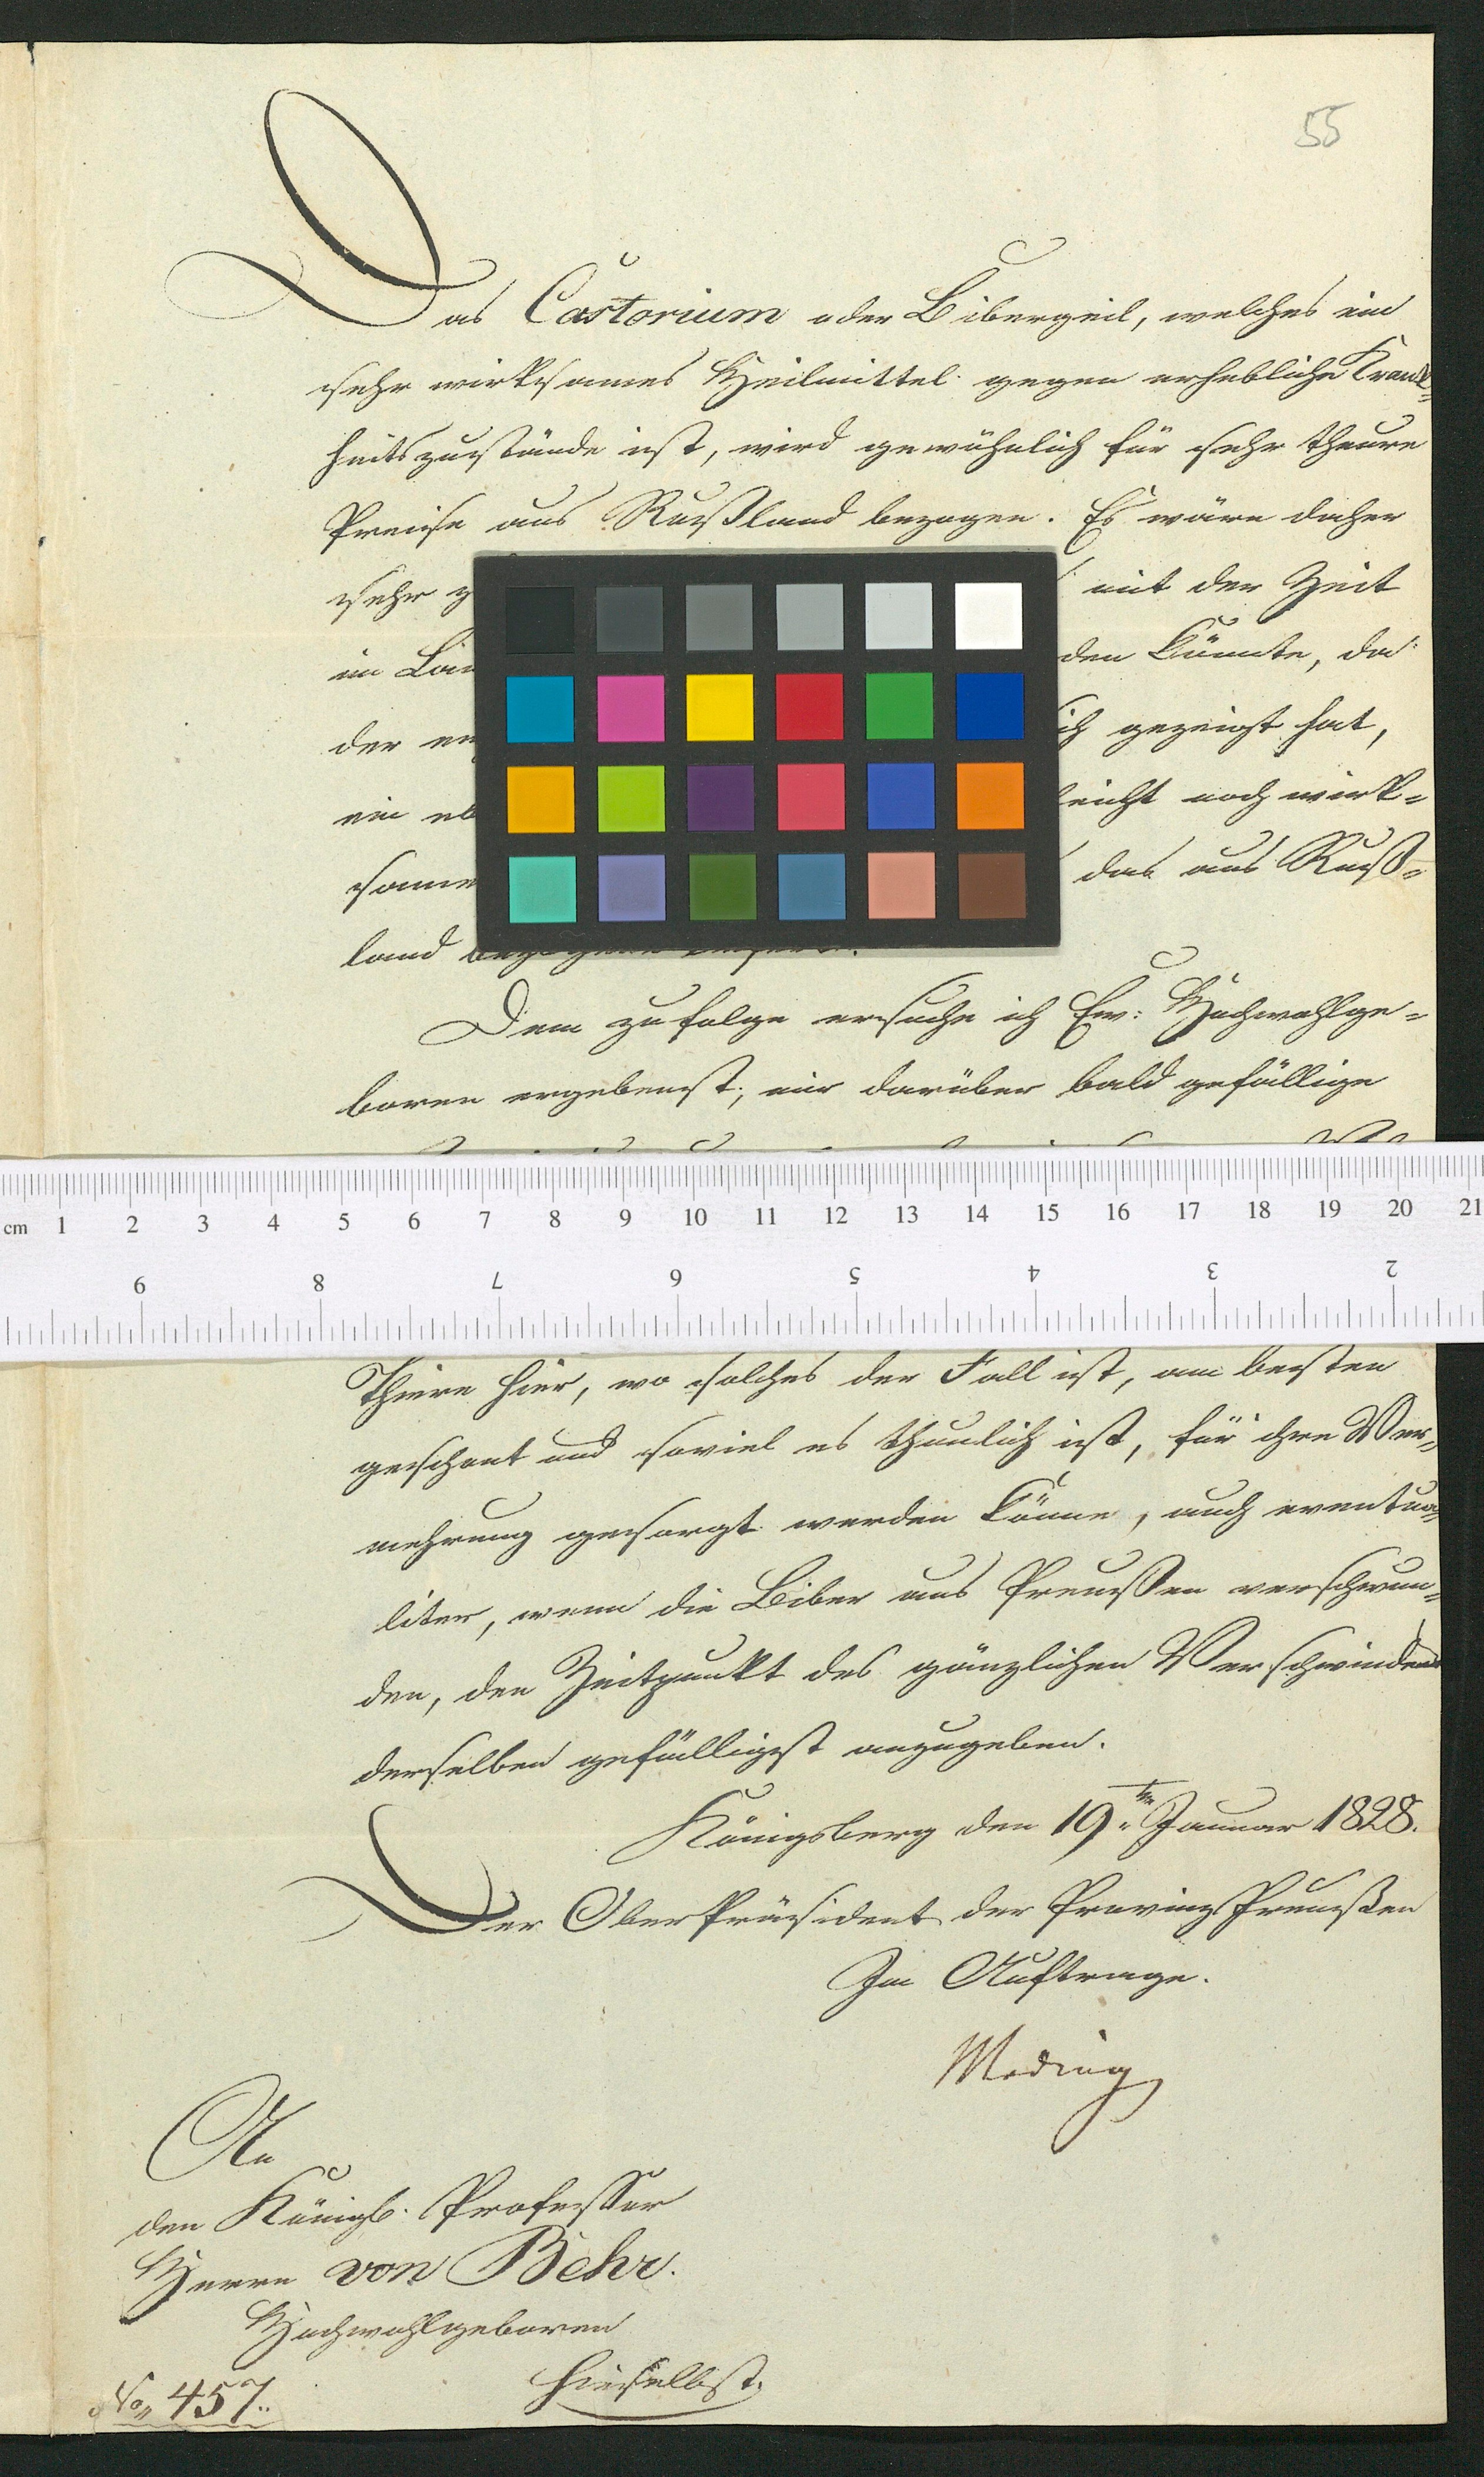 55
Das Castorium oder Bibergeil, welches ein
sehr wirksames Heilmittel gegen erhebliche Krank-
heitszustände ist, wird gewöhnlich für sehr theure
Preise aus Rußland bezogen. Es wäre daher
sehr mit der Zeit
im den könnte, da
der gezeigt hat,
ein noch wirk-
same das aus Ruß-
land
Dem zufolge ersuche ich Ew: Hochwohlge-
boren ergebenst, mir darüber bald gefällige
cm 1 2 3 4 5 6 7 8 9 10 11 12 13 14 15 16 17 18 19 20 21
9 8 7 6 5 4 3 2
Thiere hier, wo solches der Fall ist, am besten
geschont und soviel es thunlich ist, für ihre Ver-
mehrung gesorgt werden könne, auch eventua-
liter, wenn die Biber aus Preußen verschwun-
den, den Zeitpunkt des gänzlichen Verschwindens
derselben gefälligst anzugeben.
Königsberg den 19ten Januar 1828.
Der Ober Präsident der Provinz Preußen
Im Auftrage.
Meding
An
den Königl. Professor
Herrn von Behr.
Hochwohlgeboren
hieselbst.
No. 457.